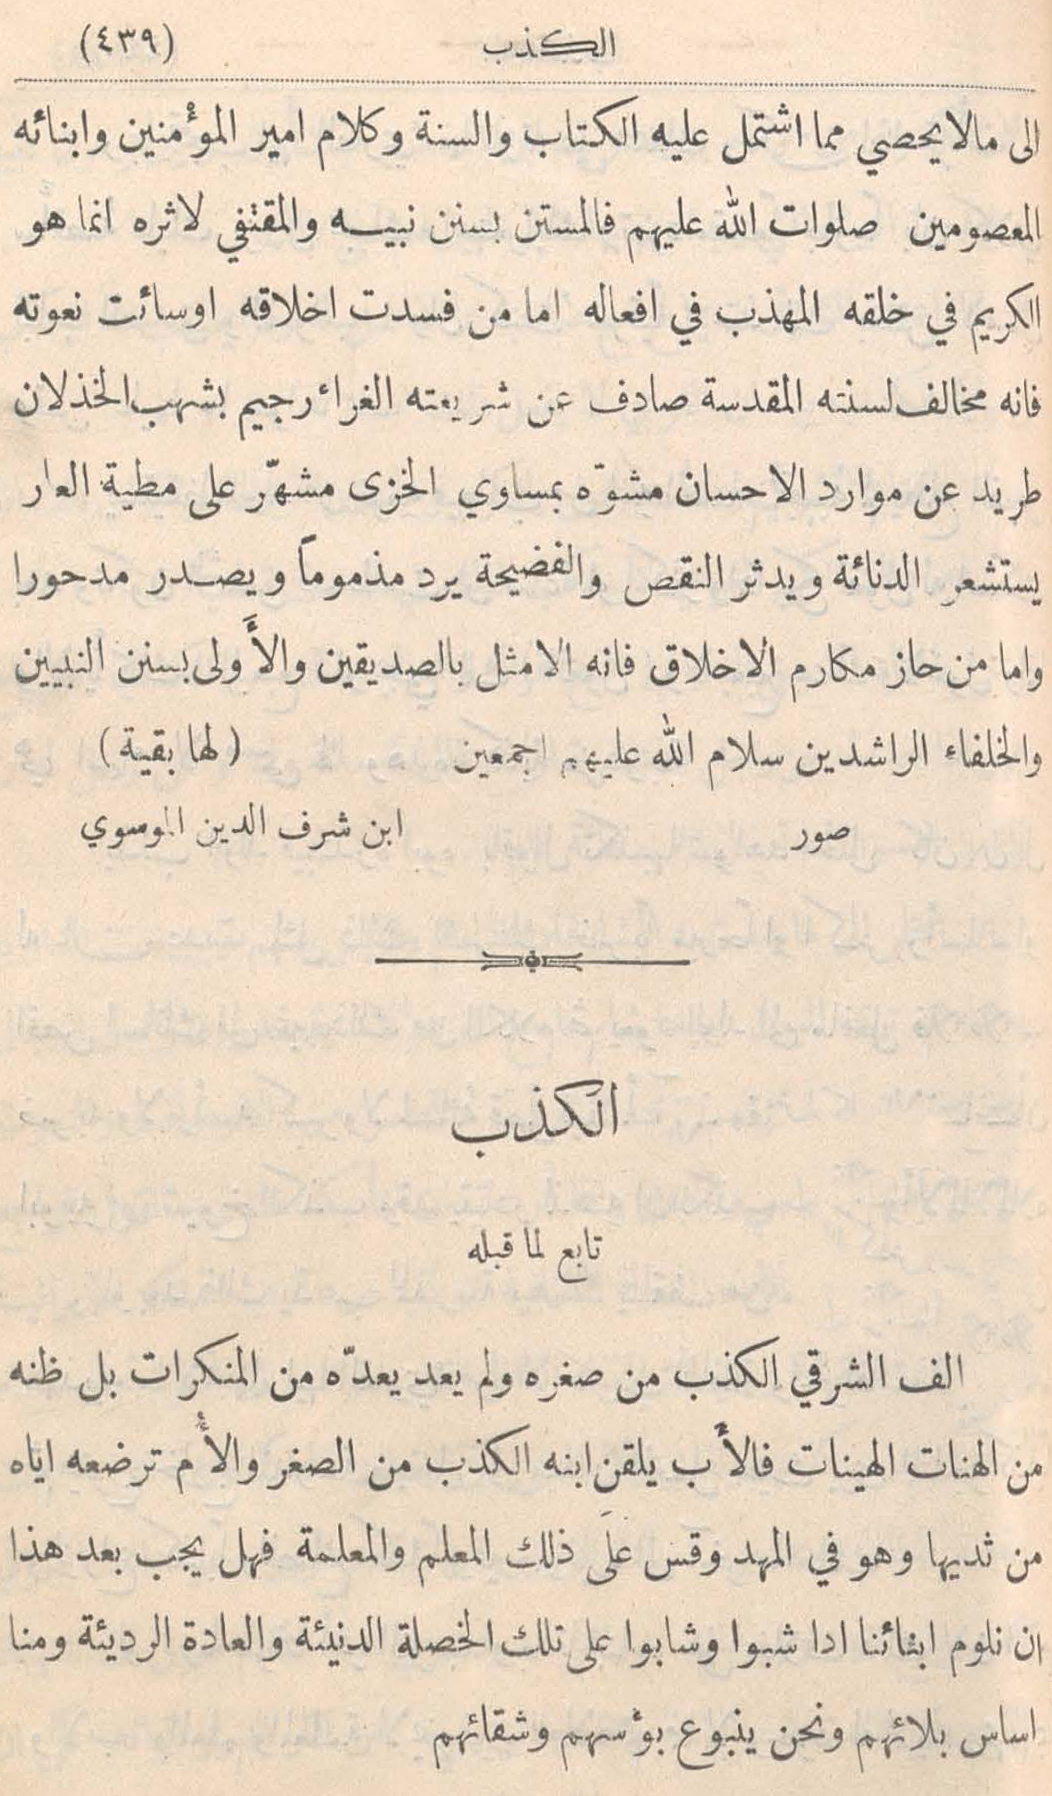 الكذب (٤٣٩)
الى مالا يحصي مما اشتمل عليه الكتاب والسنة وكلام امير المؤمنين وابنائه
المعصومين صلوات الله عليهم فالمستن بسنن نبيه والمقتفي لاثره انما هو
الكريم في خلقه المهذب في افعاله اما من فسدت اخلاقه اوسائت نعوته
فانه مخالف لسنته المقدسة صادف عن شريعته الغراء رجيم بشهب الخذلان
طريد عن موارد الاحسان مشوّه بمساوي الخزى مشهّر على مطية العار
يستشعر الدنائة ويدثر النقص والفضيحة يرد مذموماً ويصدر مدحورا
واما من حاز مكارم الاخلاق فانه الامثل بالصديقين والأَولى بسنن النبيين
والخلفاء الراشدين سلام الله عليهم اجمعين (لها بقية)
صور ابن شرف الدين الموسوي
الكذب
تابع لما قبله
الف الشرقي الكذب من صغره ولم يعد يعدّه من المنكرات بل ظنه
من الهنات الهينات فالأَب يلقن ابنه الكذب من الصغر والأُم ترضعه اياه
من ثديها وهو في المهد وقس علَى ذلك المعلم والمعلمة فهل يجب بعد هذا
ان نلوم ابنائنا اذا شبوا وشابوا على تلك الخصلة الدنيئة والعادة الرديئة ومنا
اساس بلائهم ونحن ينبوع بؤسهم وشقائهم